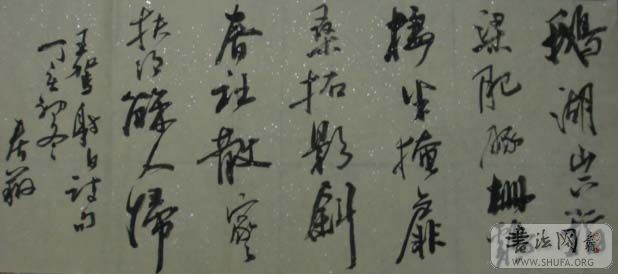 鵝湖山下稻
粱肥豚栅
棲半掩扉
桑柘影斜
春社散家々
扶得醉人歸
王駕社日詩句
丁亥初冬
書法网
WWW.SHUFA.ORG